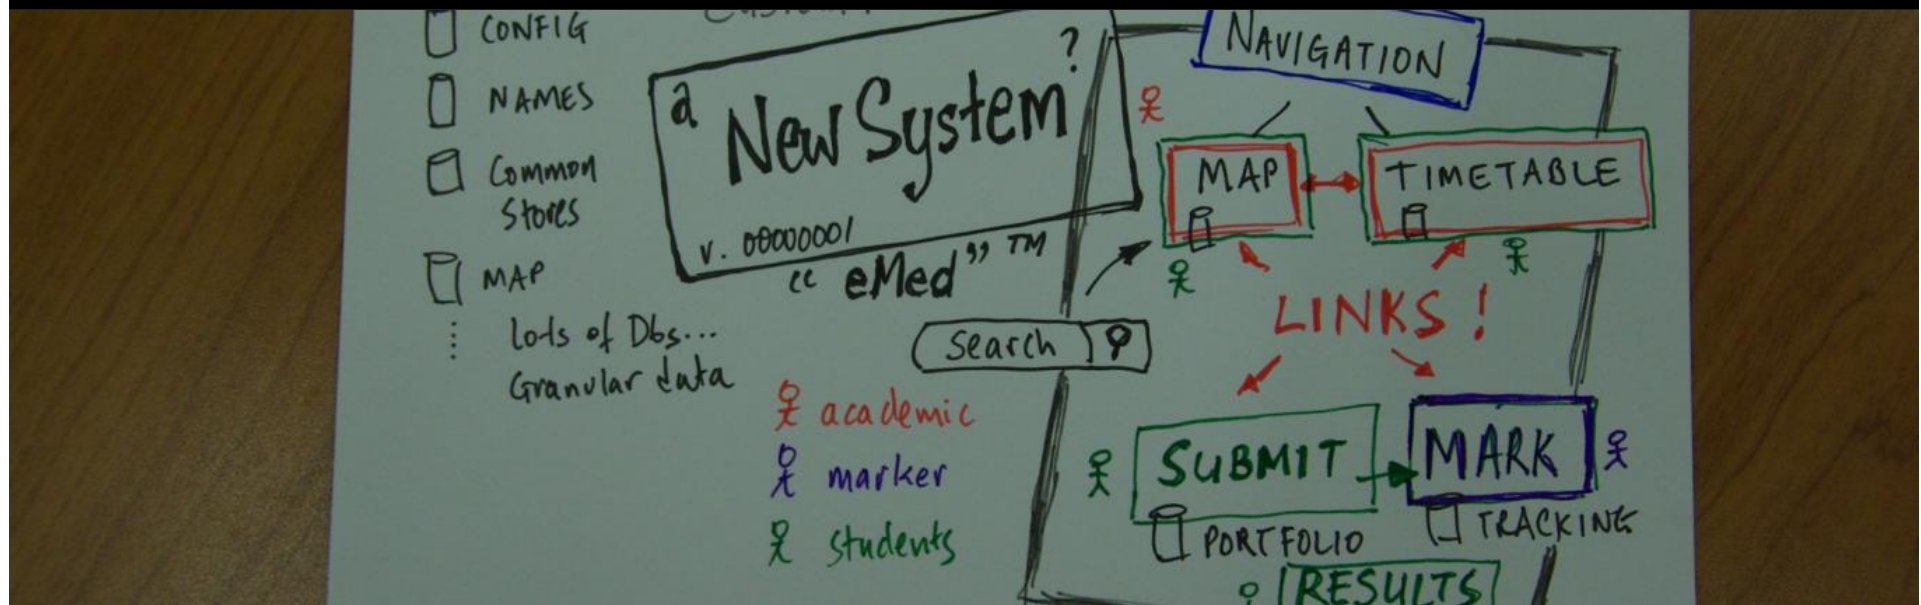 CONFIG
NAMES
Common
Stores
MAP
Lots of Dbs...
Granular data
a New System?
v. 00000001
"eMed" TM
Search
academic
marker
students
NAVIGATION
MAP
TIMETABLE
LINKS!
SUBMIT
MARK
PORTFOLIO
TRACKING
RESULTS